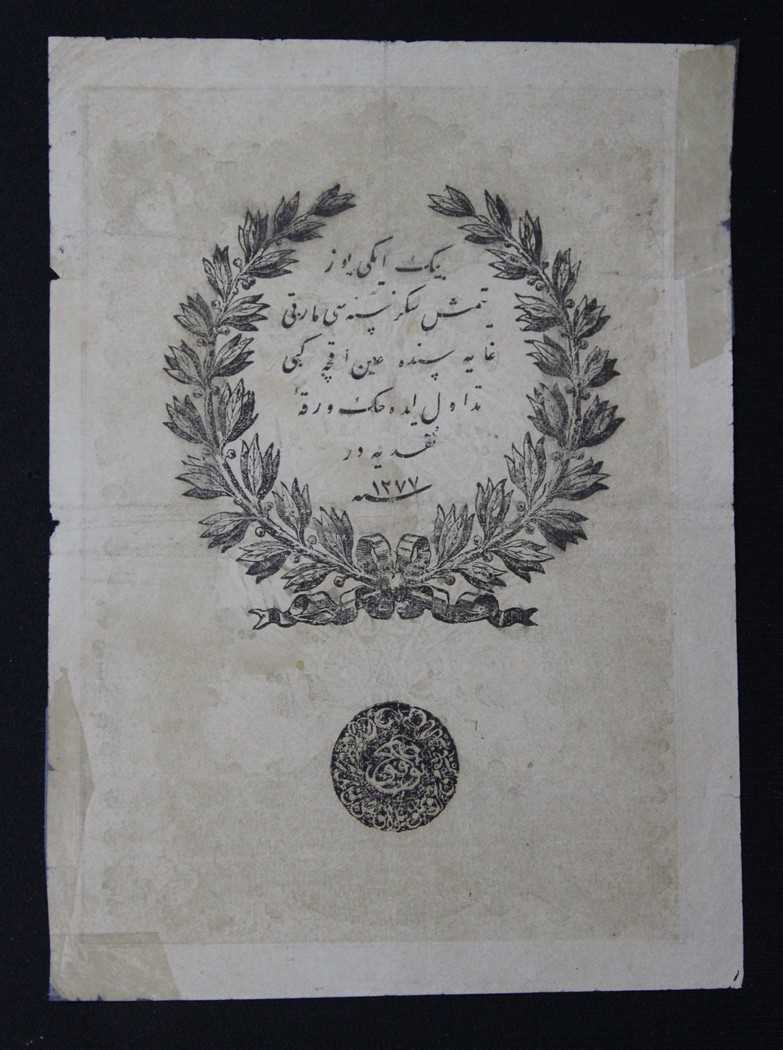 بیك ایكی یوز
یتمش سكز سنه سی مارتی
غایه سنده عین اقچه كبی
تداول ایده جك ورقۀ
نقدیه در
سنه ۱۲۷۷